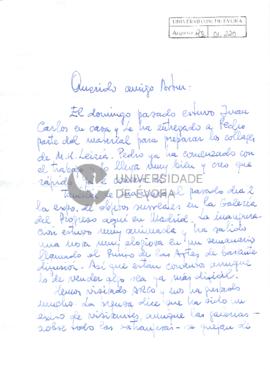 UNIVERSIDADE DE ÉVORA
Querido amigo Artur:
El domingo pasado estuvo Juan
Carlos en casa y le ha entregado a Pedro
parte del material para preparar los collages
de Pedro ya ha comenzado con
el trabajo lo lleva muy bien y creo que
UNIVERSIDADE
DE ÉVORA
el pasado dia 2
la expo. de objetos surrealistas en la Galeria
del Progreso aqui en Madrid. La inaugura-
ción estuvo muy animada y ha salido
una nota muy elogiosa en un semanario
llamado el Punto de las Artes de
Así que estan contentos aunque
lo de vender algo sea ya más dificil.
Hemos visitado ARCO y nos ha gustado
mucho. La dice que ha sido un
exito de visitantes, aunque las galerias -
sobre todo las - se quejan de